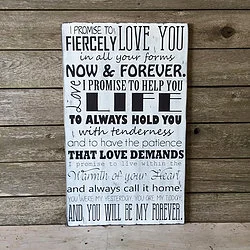 I PROMISE TO
FIERCELY LOVE YOU
in all your forms
NOW & FOREVER.
Love
I PROMISE TO HELP YOU
LIFE
TO ALWAYS HOLD YOU
with tenderness
and to have the patience
THAT LOVE DEMANDS
I promise to live within the
Warmth of your Heart
and always call it home.
YOU WERE MY YESTERDAY, YOU ARE MY TODAY,
AND YOU WILL BE MY FOREVER.